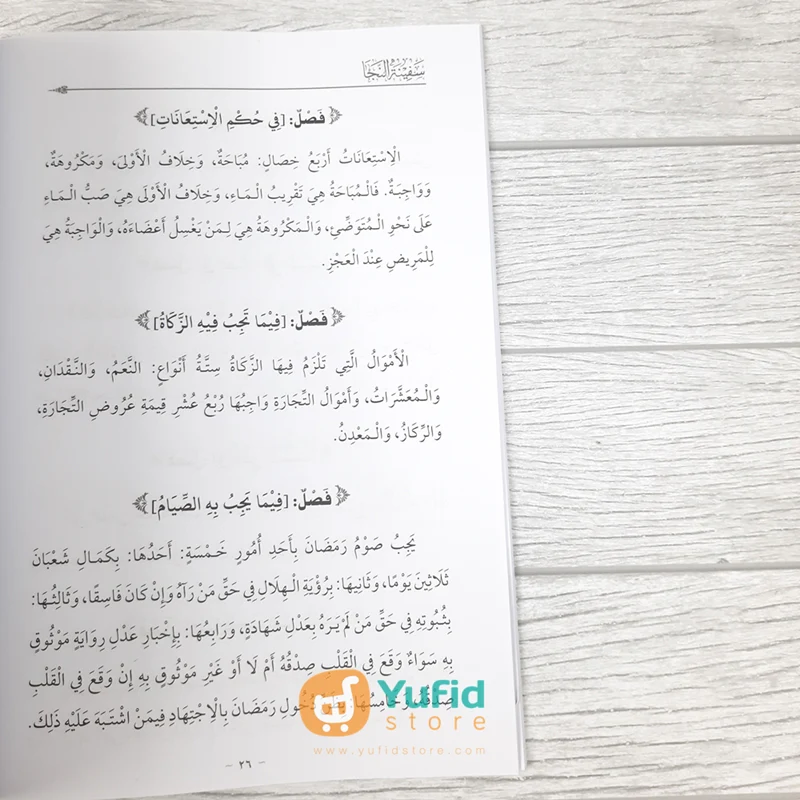 سَفِيْنَةُ النَّجَا
فَصْلٌ: [فِي حُكْمِ الْاِسْتِعَانَاتِ]
الْاِسْتِعَانَاتُ أَرْبَعُ خِصَالٍ: مُبَاحَةٌ، وَخِلَافُ الْأَوْلَى، وَمَكْرُوهَةٌ،
وَوَاجِبَةٌ. فَالْمُبَاحَةُ هِيَ تَقْرِيبُ الْمَاءِ، وَخِلَافُ الْأَوْلَى هِيَ صَبُّ الْمَاءِ
عَلَى نَحْوِ الْمُتَوَضِّئِ، وَالْمَكْرُوهَةُ هِيَ لِمَنْ يَغْسِلُ أَعْضَاءَهُ، وَالْوَاجِبَةُ هِيَ
لِلْمَرِيضِ عِنْدَ الْعَجْزِ.
فَصْلٌ: [فِيْمَا تَجِبُ فِيْهِ الزَّكَاةُ]
الْأَمْوَالُ الَّتِي تَلْزَمُ فِيهَا الزَّكَاةُ سِتَّةُ أَنْوَاعٍ: النَّعَمُ، وَالنَّقْدَانِ،
وَالْمُعَشَّرَاتُ، وَأَمْوَالُ التِّجَارَةِ وَاجِبُهَا رُبْعُ عُشْرِ قِيمَةِ عُرُوضِ التِّجَارَةِ،
وَالرِّكَازُ، وَالْمَعْدِنُ.
فَصْلٌ: [فِيْمَا يَجِبُ بِهِ الصِّيَامُ]
يَجِبُ صَوْمُ رَمَضَانَ بِأَحَدِ أُمُورٍ خَمْسَةٍ: أَحَدُهَا: بِكَمَالِ شَعْبَانَ
ثَلَاثِينَ يَوْمًا، وَثَانِيهَا: بِرُؤْيَةِ الْهِلَالِ فِي حَقِّ مَنْ رَآهُ وَإِنْ كَانَ فَاسِقًا، وَثَالِثُهَا:
بِثُبُوتِهِ فِي حَقِّ مَنْ لَمْ يَرَهُ بِعَدْلِ شَهَادَةٍ، وَرَابِعُهَا: بِإِخْبَارِ عَدْلِ رِوَايَةٍ مَوْثُوقٍ
بِهِ سَوَاءٌ وَقَعَ فِي الْقَلْبِ صِدْقُهُ أَمْ لَا أَوْ غَيْرِ مَوْثُوقٍ بِهِ إِنْ وَقَعَ فِي الْقَلْبِ
صِدْقُهُ، وَخَامِسُهَا: بِظَنِّ دُخُولِ رَمَضَانَ بِالْاِجْتِهَادِ فِيمَنْ اشْتَبَهَ عَلَيْهِ ذَلِكَ.
Yufid
store
www.yufidstore.com
- ٢٦ -